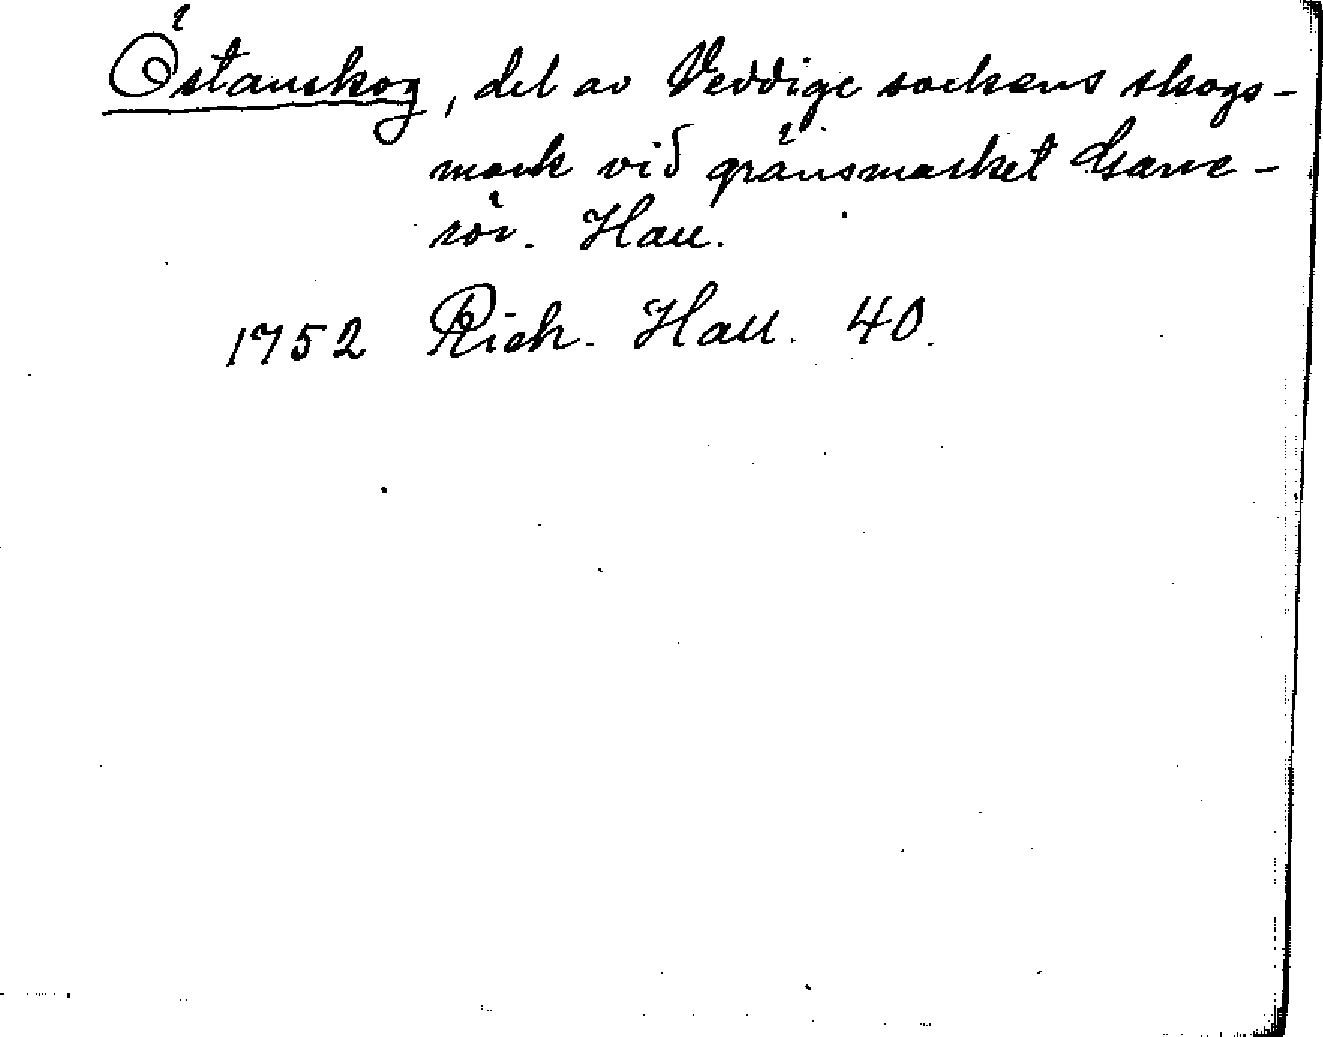 Östanskog, del av Veddige sockens skogs-
mark vid gränsmärket
rör. Hall.
1752 Rich. Hall. 40.